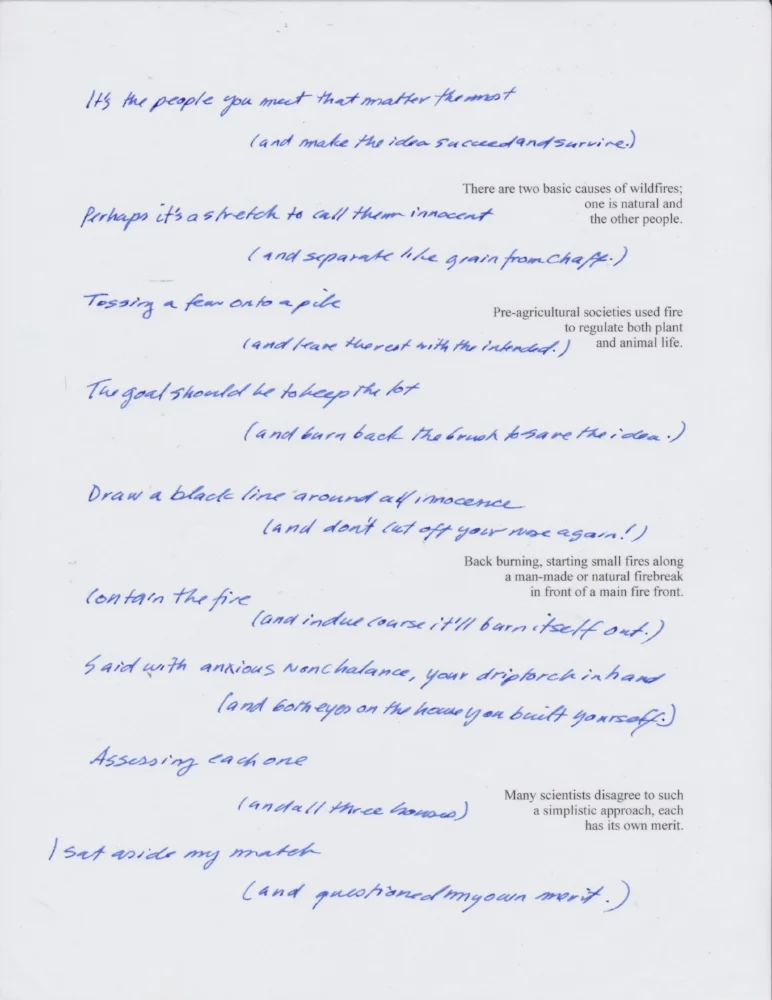 It's the people you meet that matter the most
(and make the idea succeed and survive.)
There are two basic causes of wildfires;
one is natural and
Perhaps it's a stretch to call them innocent
the other people.
(and separate like grain from chaff.)
Tossing a few onto a pile
Pre-agricultural societies used fire
to regulate both plant
(and leave the rest with the intended.)
and animal life.
The goal should be to keep the lot
(and burn back the brush to save the idea.)
Draw a black line around all innocence
(and don't cut off your nose again!)
Back burning, starting small fires along
a man-made or natural firebreak
in front of a main fire front.
Contain the fire
(and in due course it'll burn itself out.)
Said with anxious nonchalance, your driptorch in hand
(and both eyes on the house you built yourself.)
Assessing each one
Many scientists disagree to such
(and all three houses)
a simplistic approach, each
has its own merit.
I sat aside my match
(and questioned my own merit.)